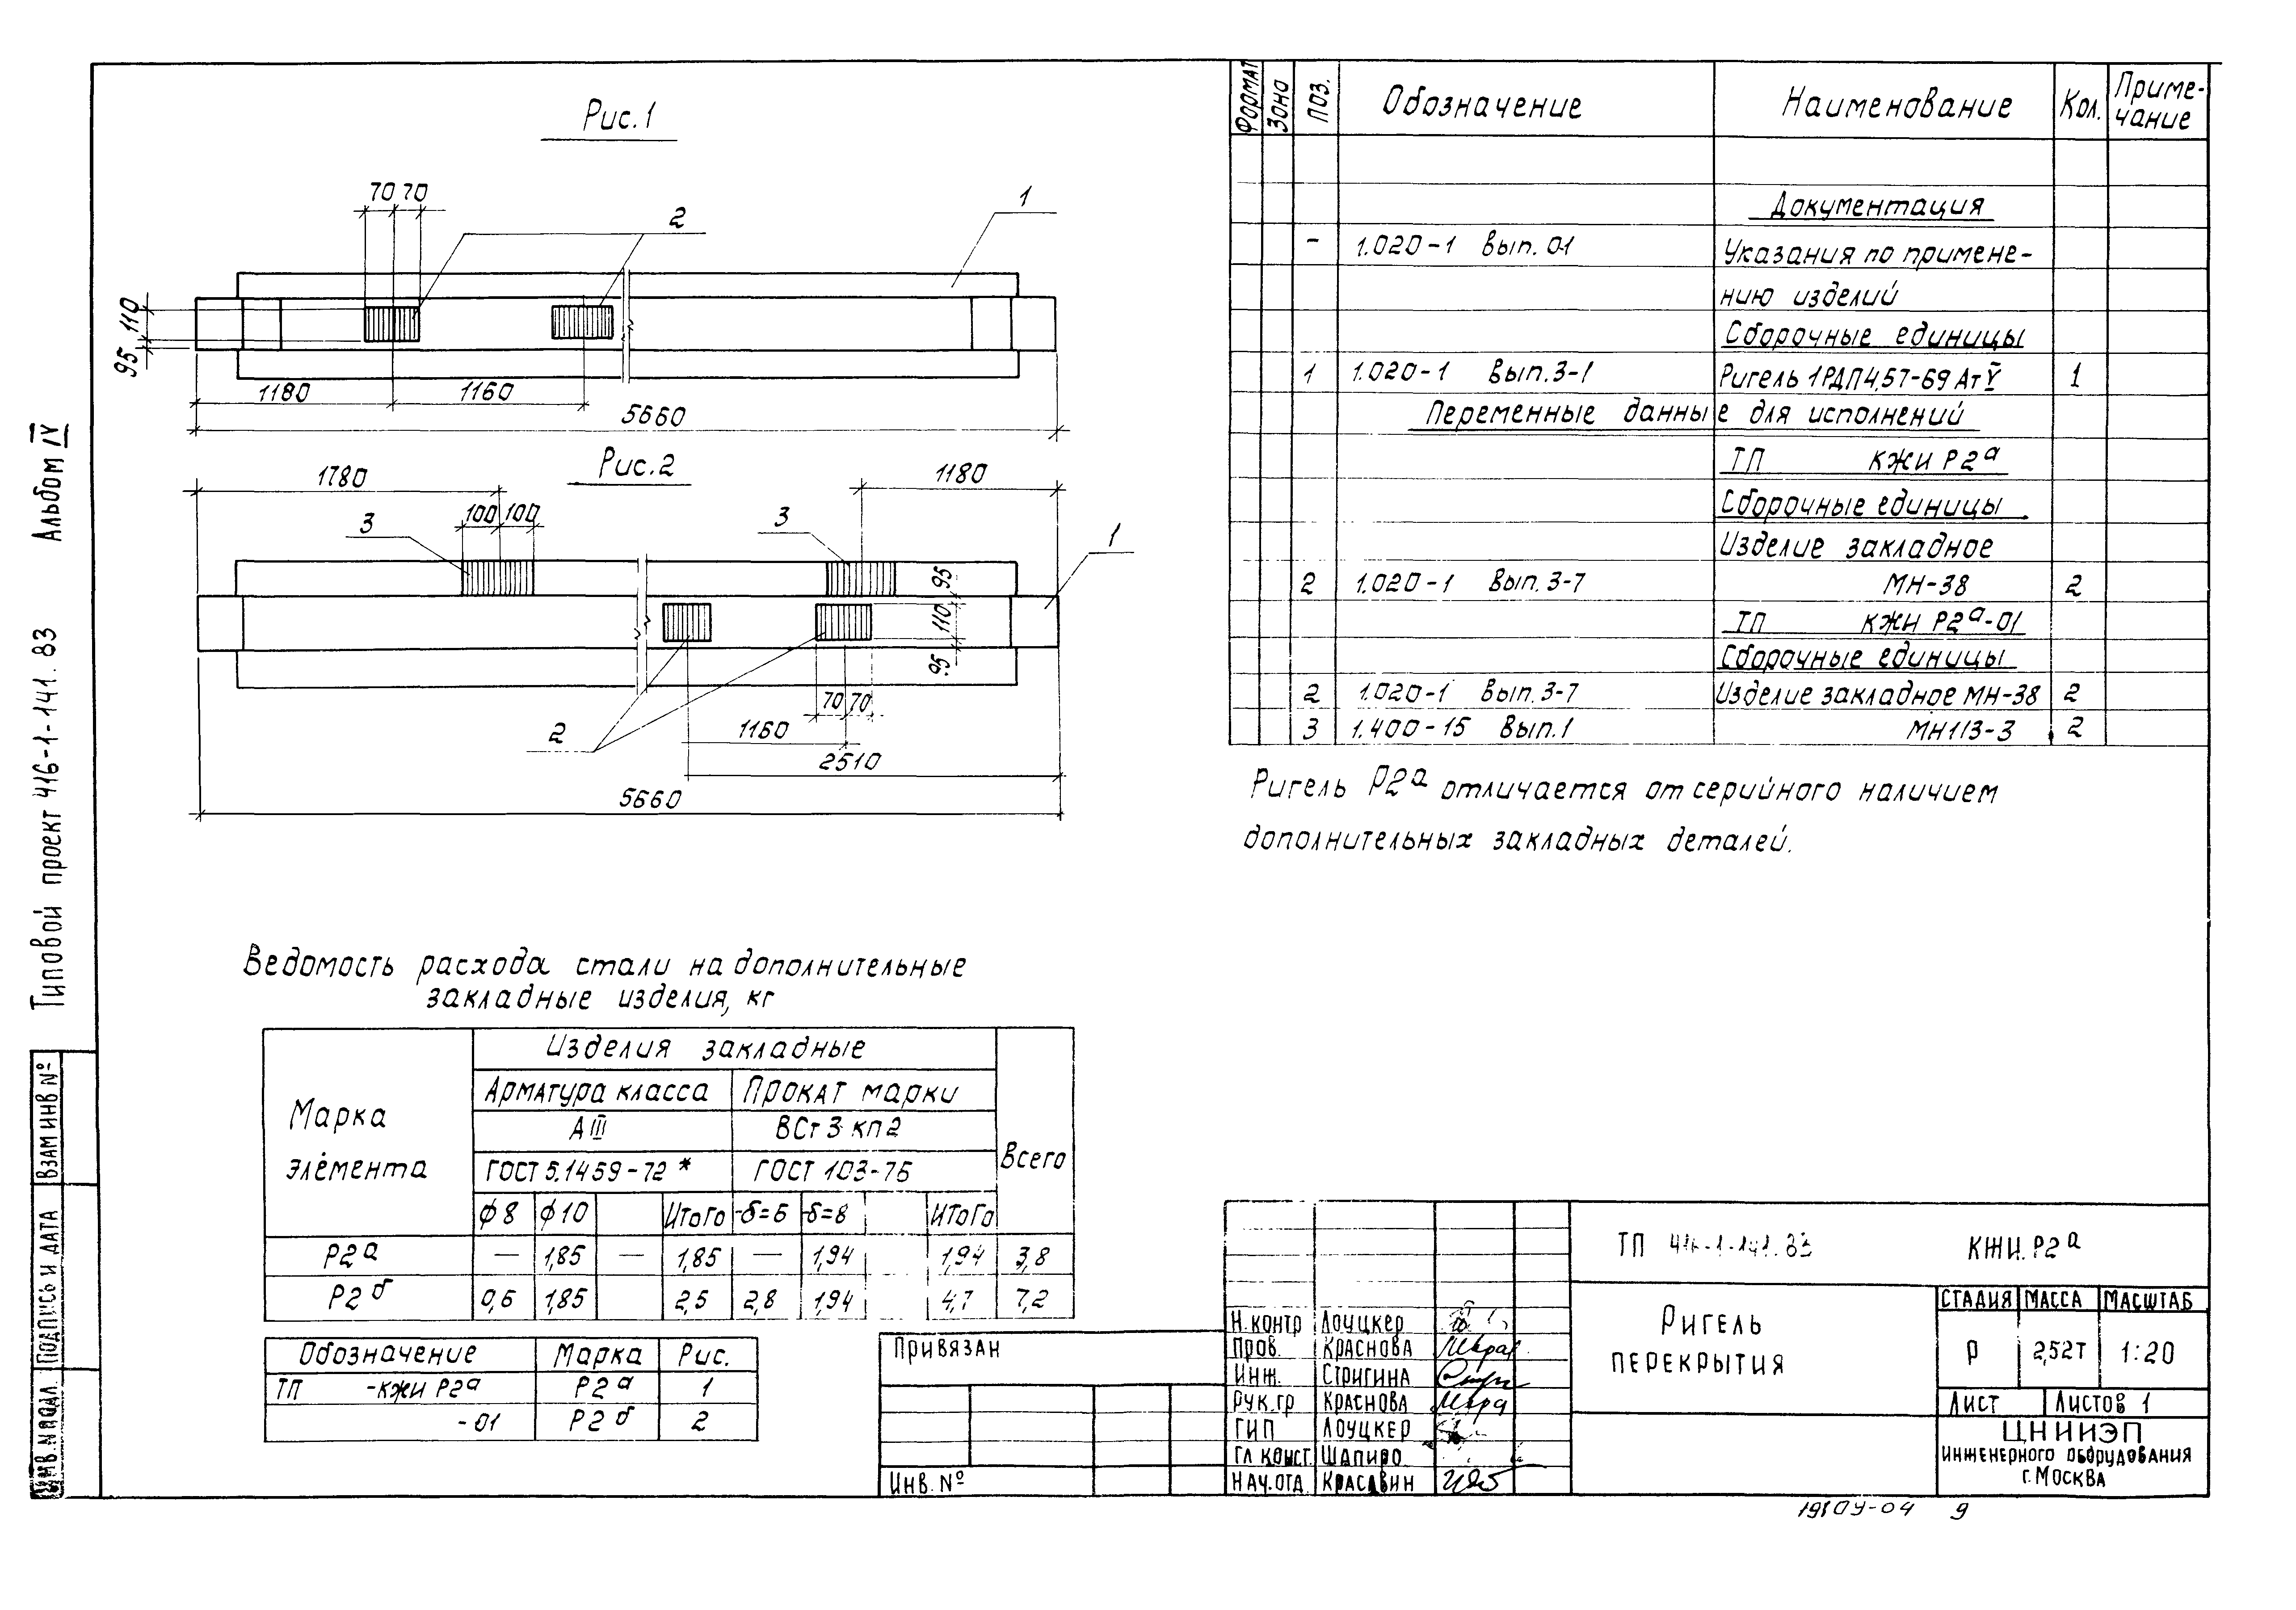 Типовой проект 416-1-141.83 Альбом IV
Рис.1
70 70
2
1
110
95
1180
1160
5660
Рис.2
1780
1180
100 100
3
3
1
95
110
95
70 70
2
1160
2510
5660
Формат Зона Поз. Обозначение Наименование Кол. Приме-
чание
Документация
– 1.020-1 Вып. 0-1 Указания по примене-
нию изделий
Сборочные единицы
1 1.020-1 Вып.3-1 Ригель 1РДП4.57-69 АтV 1
Переменные данные для исполнений
ТП КЖИ Р2а
Сборочные единицы
Изделие закладное
2 1.020-1 Вып. 3-7 МН-38 2
ТП КЖИ Р2а-01
Сборочные единицы
2 1.020-1 Вып.3-7 Изделие закладное МН-38 2
3 1.400-15 Вып.1 МН113-3 2
Ригель Р2а отличается от серийного наличием
дополнительных закладных деталей.
Ведомость расхода стали на дополнительные
закладные изделия, кг
Марка элемента
Изделия закладные
Всего
Арматура класса Прокат марки
АIII ВСт3кп2
ГОСТ 5.1459-72* ГОСТ 103-76
ф8 ф10 Итого -δ=6 -δ=8 Итого
Р2а — 1,85 — 1,85 — 1,94 1,94 3,8
Р2б 0,6 1,85 2,5 2,8 1,94 4,7 7,2
Обозначение Марка Рис.
ТП -КЖИ Р2а Р2а 1
-01 Р2б 2
Привязан
Инв. №
Н.контр Лоуцкер
Пров. Краснова
Инж. Стригина
Рук.гр Краснова
ГИП Лоуцкер
Гл конст. Шапиро
Нач.отд. Красавин
ТП 416-1-141.83 КЖИ.Р2а
Ригель
перекрытия
Стадия Масса Масштаб
Р 2,52т 1:20
Лист Листов 1
ЦНИИЭП
инженерного оборудования
г.Москва
Взам инв №
Подпись и дата
Инв. № подл.
9